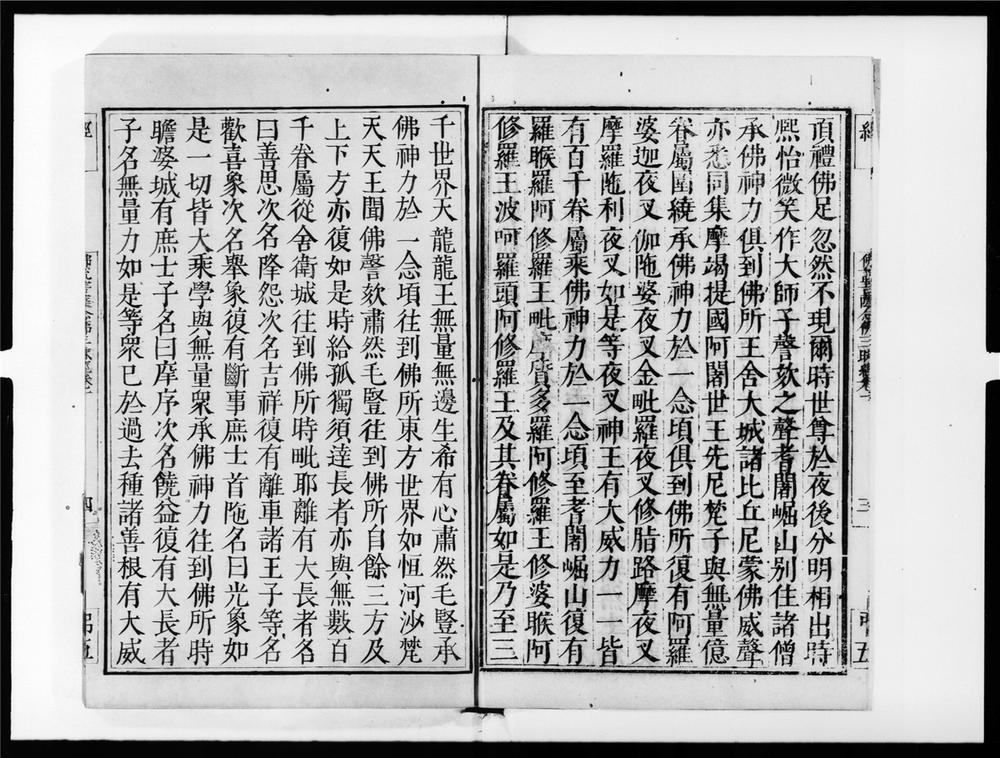 頂禮佛足忽然不現爾時世尊於夜後分明相出時
熈怡微笑作大師子謦欬之聲耆闍崛山別住諸僧
承佛神力俱到佛所王舍大城諸比丘尼蒙佛威聲
亦悉同集摩竭提國阿闍世王先尼梵子與無量億
眷屬圍繞承佛神力於一念頃俱到佛所復有阿羅
婆迦夜叉伽陁婆夜叉金毗羅夜叉修脂路摩夜叉
摩羅陁利夜叉如是等夜叉神王有大威力一一皆
有百千眷屬乘佛神力於一念頃至耆闍崛山復有
羅睺羅阿修羅王毗摩質多羅阿修羅王修婆睺阿
修羅王波呵羅頭阿修羅王及其眷屬如是乃至三
三
五
千世界天龍龍王無量無邊生希有心肅然毛豎承
佛神力於一念頃往到佛所東方世界如恒河沙梵
天天王聞佛謦欬肅然毛豎往到佛所自餘三方及
上下方亦復如是時給孤獨須達長者亦與無數百
千眷屬從舍衛城往到佛所時毗耶離有大長者名
曰善思次名降怨次名吉祥復有離車諸王子等名
歡喜象次名舉象復有斷事庶士首陁名曰光象如
是一切皆大乘學與無量衆承佛神力往到佛所時
瞻婆城有庶士子名曰摩序次名饒益復有大長者
子名無量力如是等衆已於過去種諸善根有大威
四